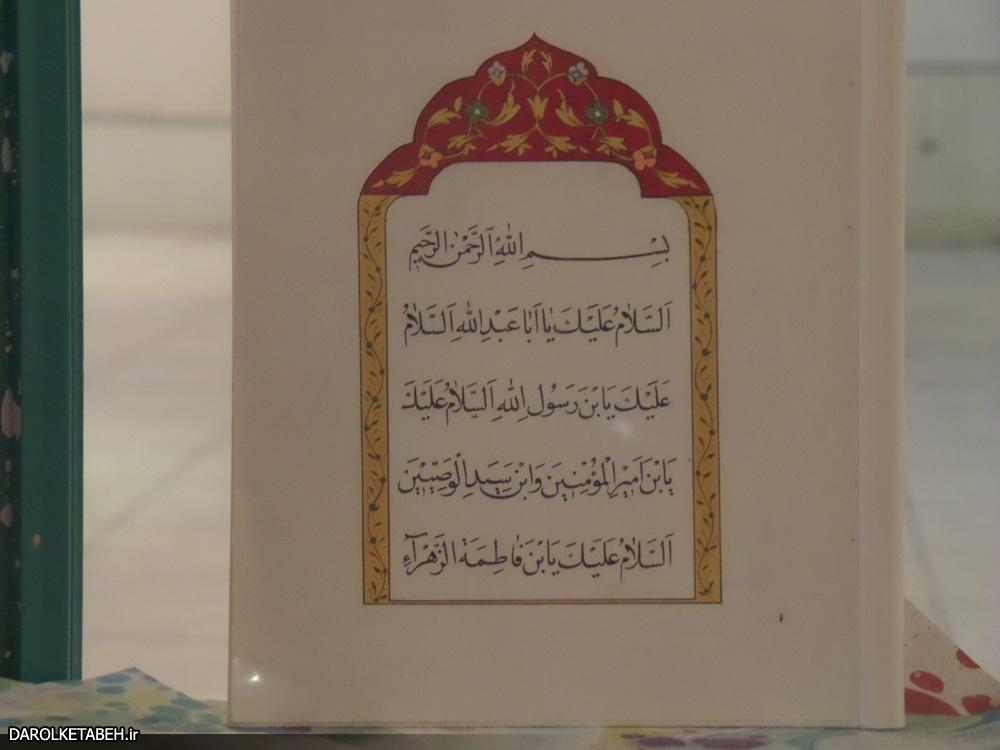 بِسْمِ اللهِ الرَّحْمٰنِ الرَّحِيمِ
اَلسَّلامُ عَلَيْكَ يا اَبا عَبْدِ اللهِ اَلسَّلامُ
عَلَيْكَ يَابْنَ رَسُولِ اللهِ اَلسَّلامُ عَلَيْكَ
يَابْنَ اَمِيرِ الْمُؤْمِنِينَ وَابْنَ سَيِّدِ الْوَصِيّينَ
اَلسَّلامُ عَلَيْكَ يَابْنَ فاطِمَةَ الزَّهْرآءِ
DAROLKETABEH.ir